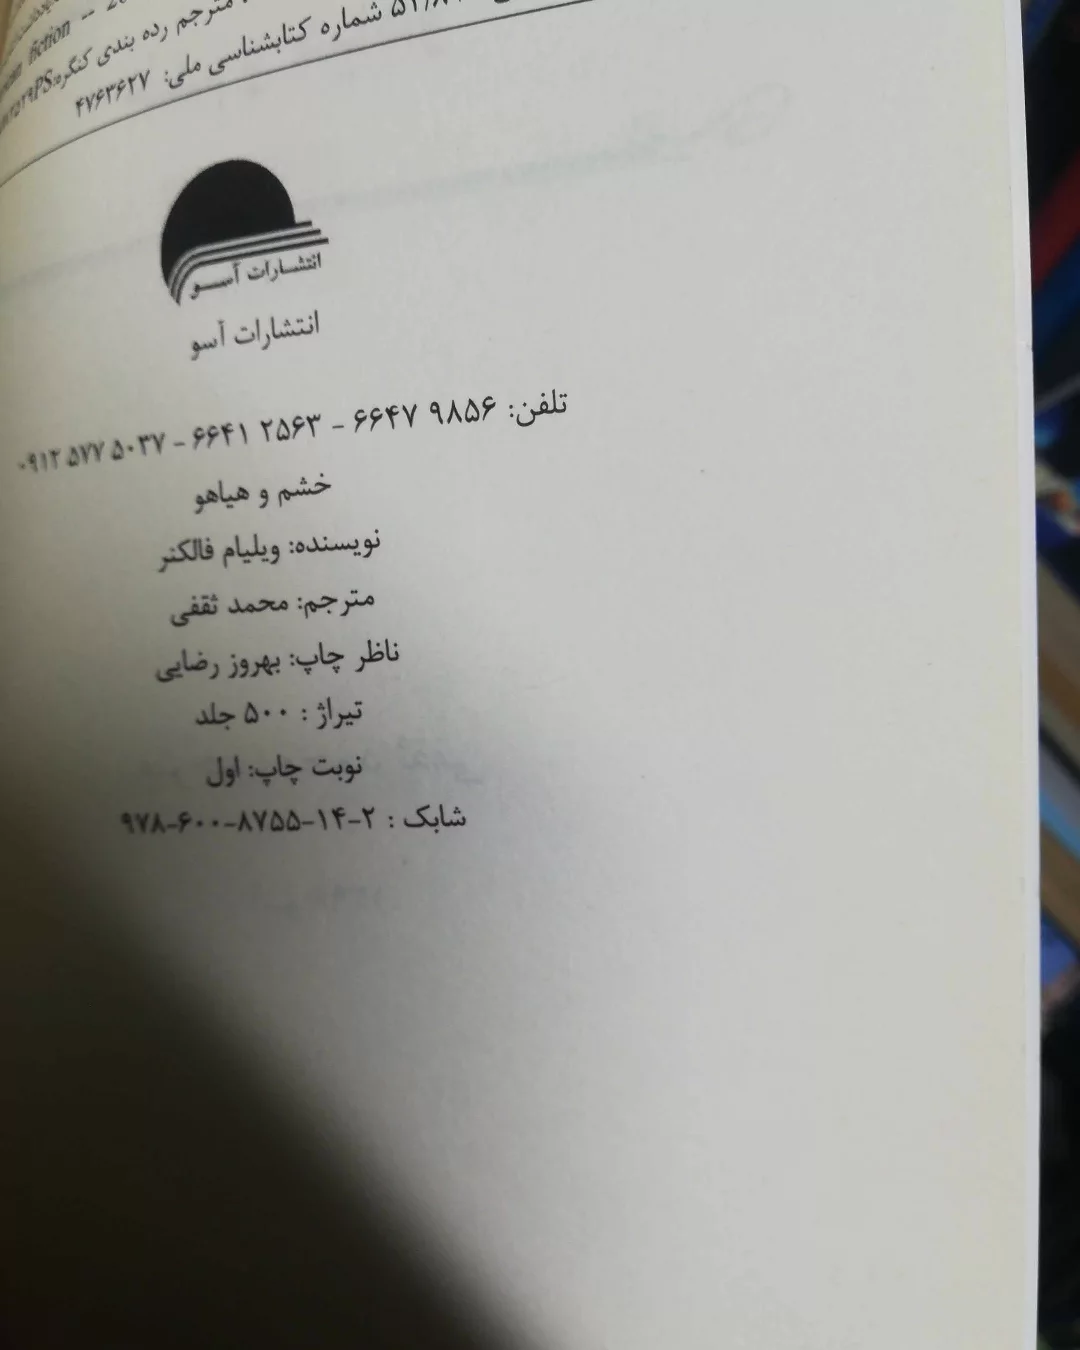 fiction -- 20
مترجم رده بندی کنگره: PS
شماره کتابشناسی ملی: ۴۷۶۳۶۲۷
انتشارات آسو
انتشارات آسو
تلفن: ۹۸۵۶ ۶۶۴۷ - ۲۵۶۳ ۶۶۴۱ - ۵۰۳۷ ۵۷۷ ۰۹۱۲
خشم و هیاهو
نویسنده: ویلیام فالکنر
مترجم: محمد ثقفی
ناظر چاپ: بهروز رضایی
تیراژ : ۵۰۰ جلد
نوبت چاپ: اول
شابک : ۲-۱۴-۸۷۵۵-۶۰۰-۹۷۸